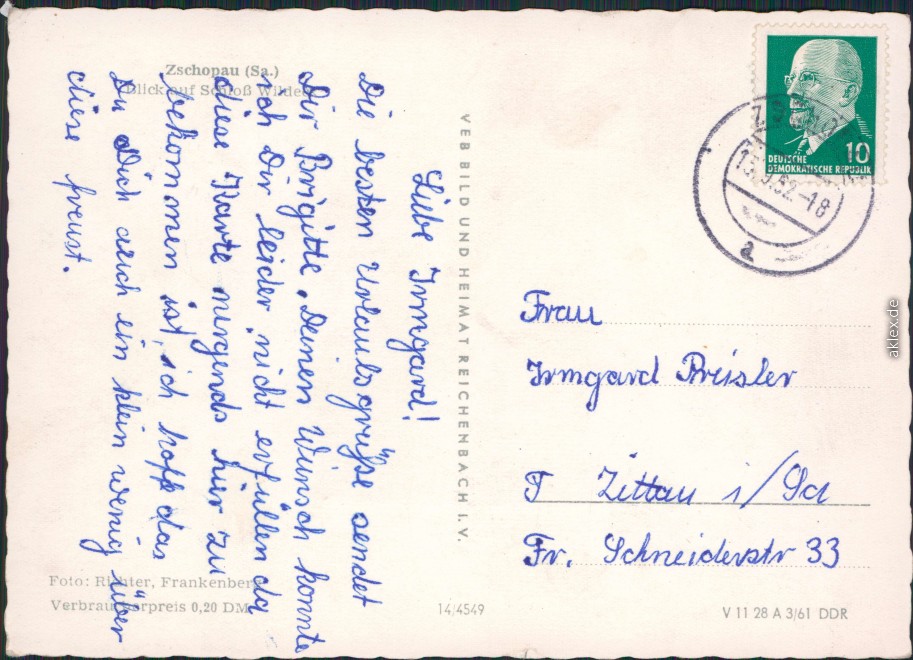 Zschopau (Sa.)
Blick auf Schloß Wildeck
Liebe Irmgard!
Die besten Urlaubsgrüße sendet
Dir Brigitte. Deinen Wunsch konnte
ich Dir leider nicht erfüllen da
diese Karte nirgends hier zu
bekommen ist, ich hoffe das
Du Dich auch ein klein wenig über
diese freust.
Foto: Richter, Frankenberg
Verbraucherpreis 0,20 DM
VEB BILD UND HEIMAT REICHENBACH I. V.
14/4549
10
DEUTSCHE
DEMOKRATISCHE REPUBLIK
.9.62.-18
a
Frau
Irmgard Preisler
Zittau i/Sa
Fr. Schneiderstr 33
V 11 28 A 3/61 DDR
aklex.de